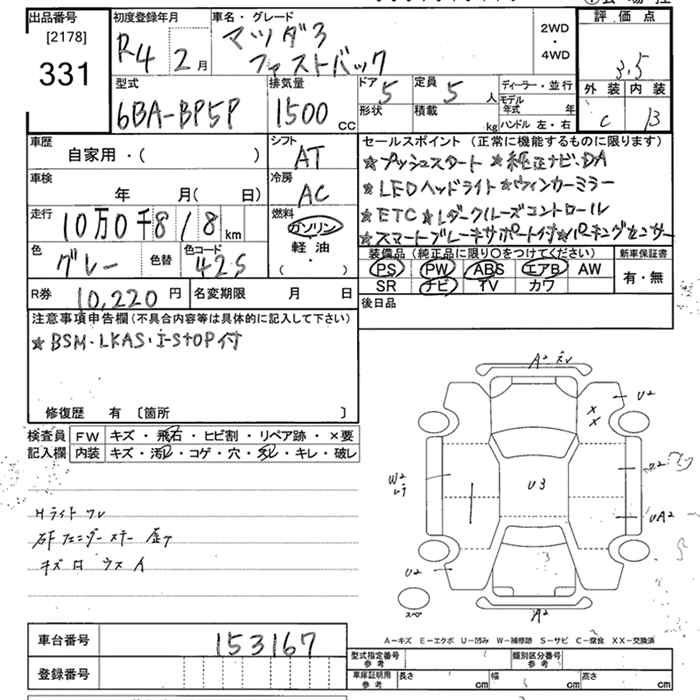 出品番号
[2178]
331
初度登録年月
R4 2月
車名・グレード
マツダ3
ファストバック
2WD
・
4WD
評価点
3.5
外装 内装
C B
型式
6BA-BP5P
排気量
1500 CC
ドア 5
形状
定員 5 人
積載 kg
ディーラー・並行
モデル年式 年
ハンドル 左・右
車歴
自家用・( )
シフト
AT
車検
年 月( 日)
冷房
AC
走行
10万0千818 km
燃料
ガソリン
軽油
・
( )
色
グレー
色替
色コード
42S
R券 10,220 円
名変期限 月 日
セールスポイント (正常に機能するものに限ります)
★プッシュスタート ★純正ナビ.DA
★LEDヘッドライト ★ウィンカーミラー
★ETC ★レダークルーズコントロール
★スマートブレーキサポート付★パーキングセンサー
装備品 (純正品に限り○をつけてください)
新車保証書
PS PW ABS エアB AW
有・無
SR ナビ TV カワ
後日品
注意事項申告欄(不具合内容等は具体的に記入して下さい)
★BSM・LKAS・i-STOP付
修復歴 有 〔箇所 〕
検査員
記入欄
FW キズ・飛石・ヒビ割・リペア跡・×要
内装 キズ・汚れ・コゲ・穴・スレ・キレ・破レ
Hライト スレ
右F フェンダー ステー 歪ケ
キズ ロ ウス イ
A2
U2
X
X
W2
U3
UA2
U2
スペア
A2
A-キズ E-エクボ U-凹み W-補修跡 S-サビ C-腐食 XX-交換済
車台番号 153167
登録番号
型式指定番号
参考
類別区分番号
参考
車庫証明用
参考
長さ cm
幅 cm
高さ cm